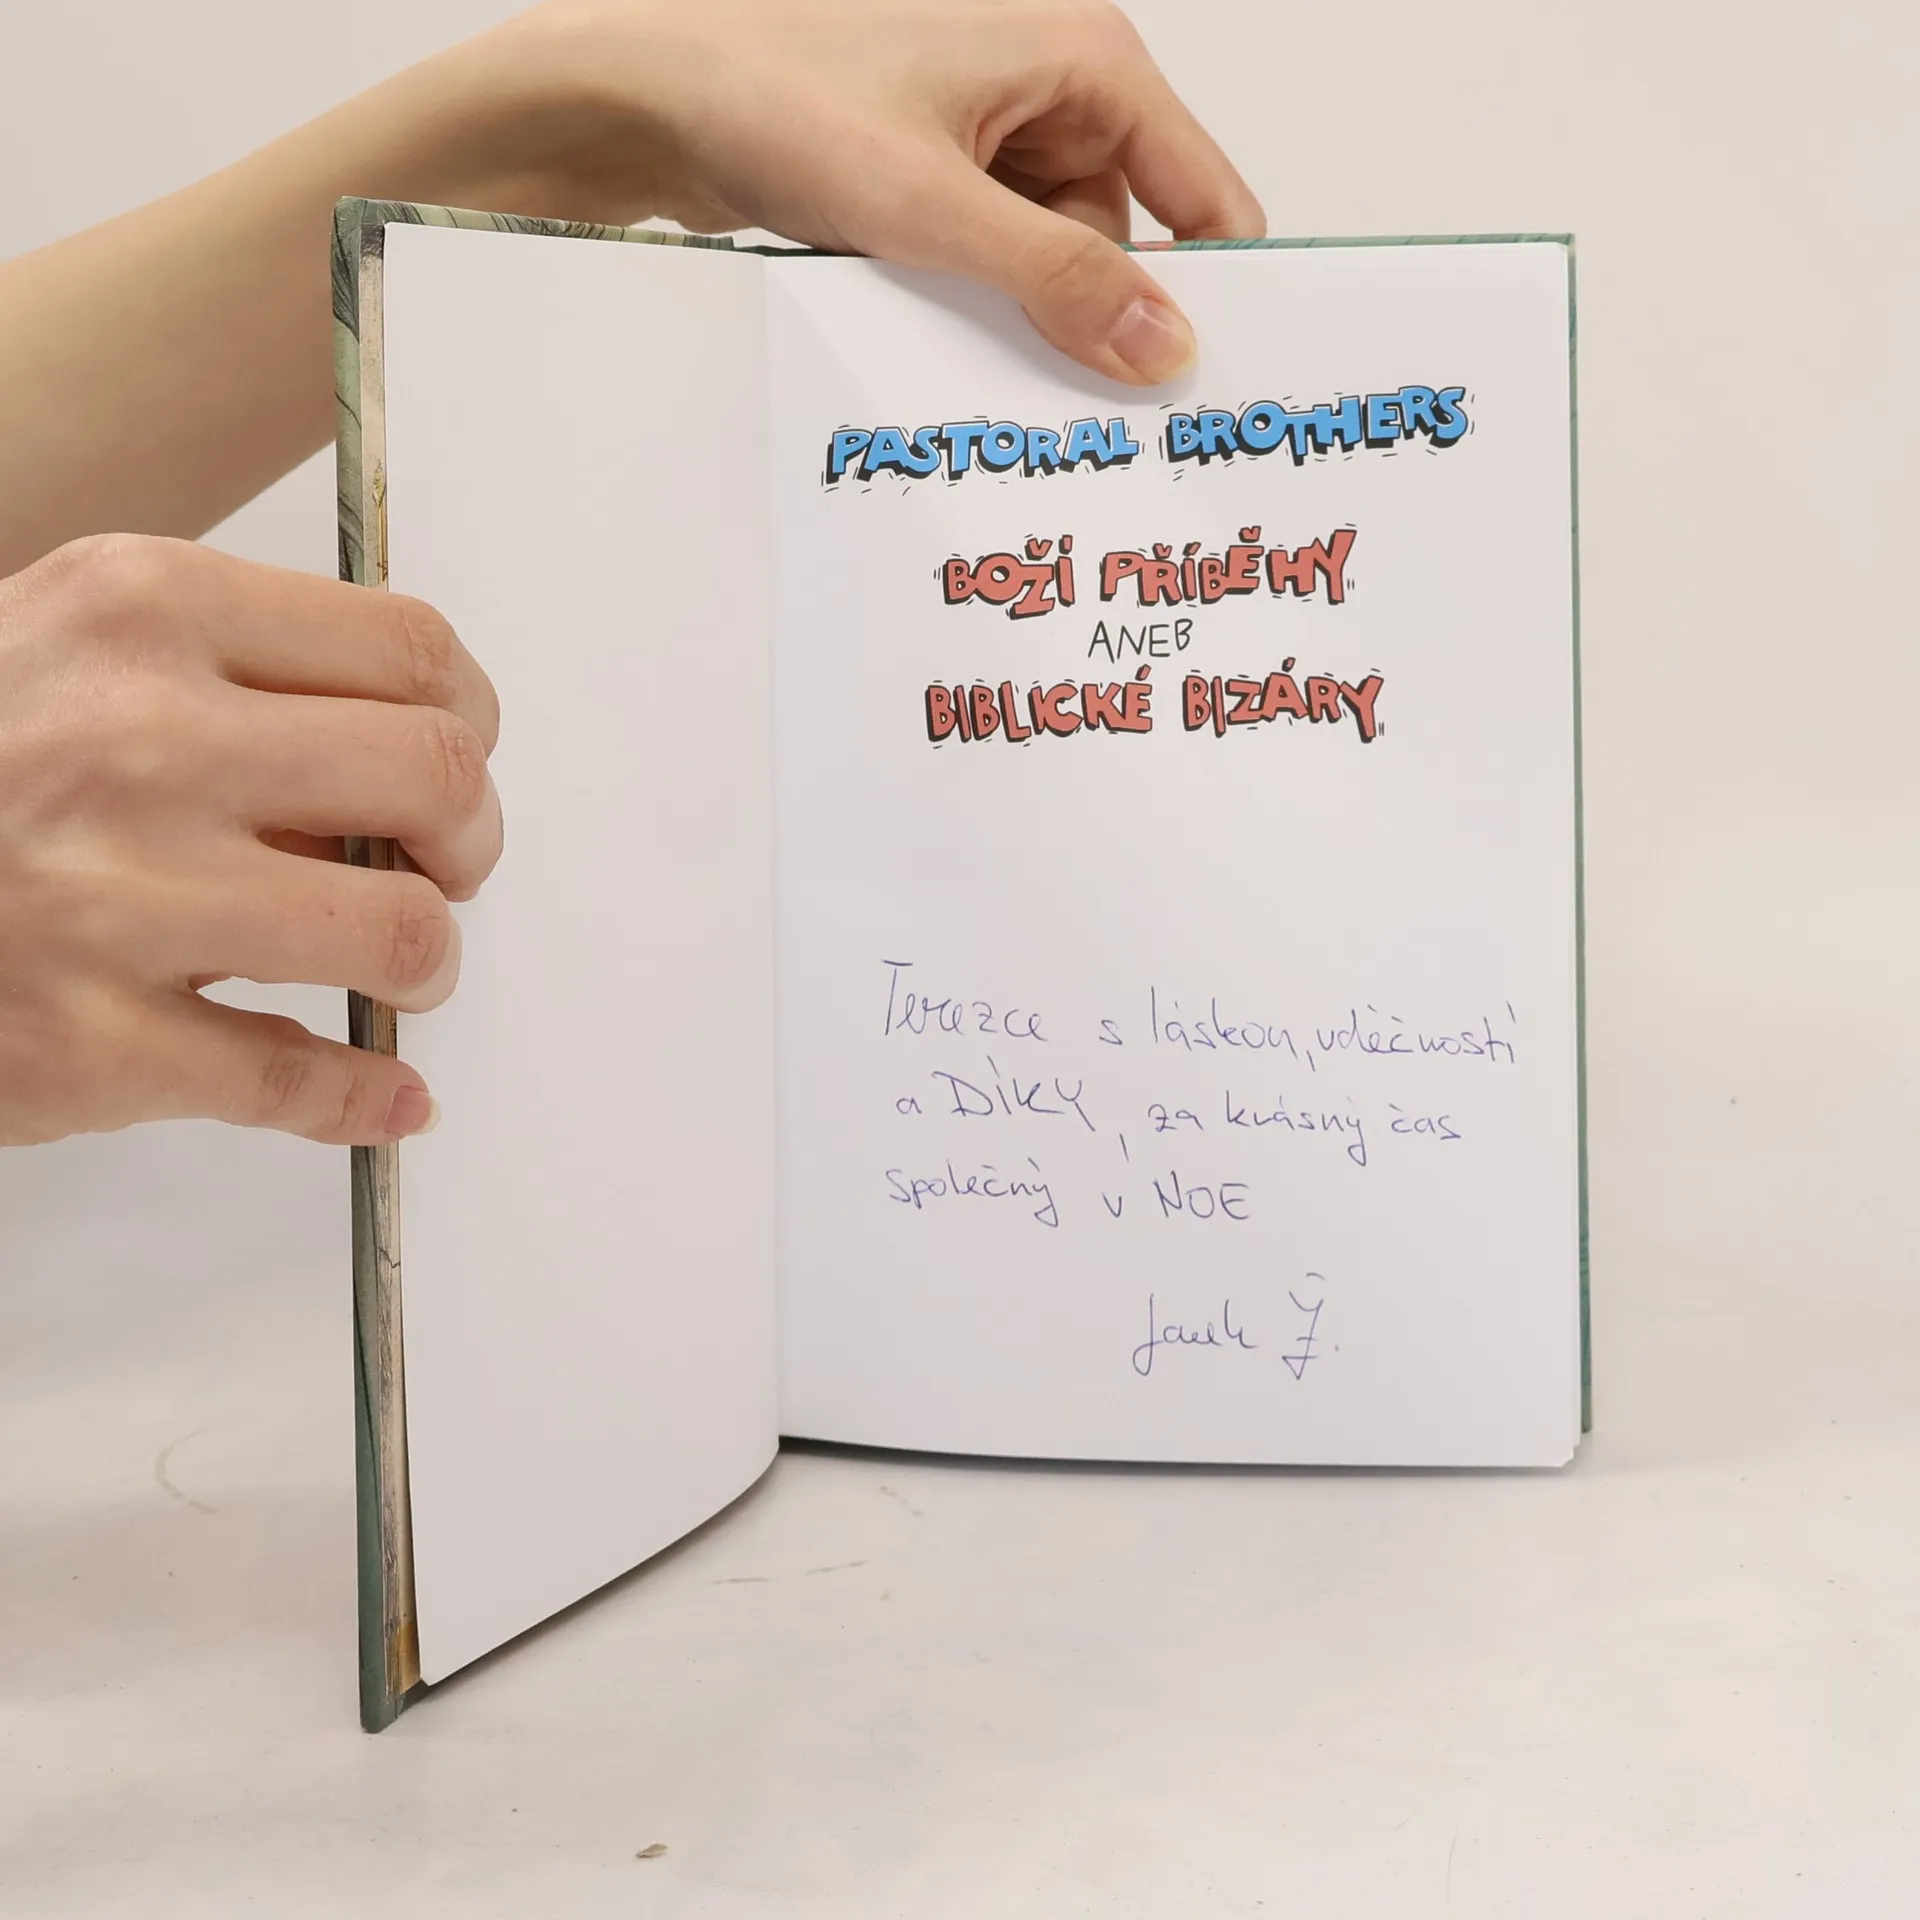 PASTORAL BROTHERS
BOŽÍ PŘÍBĚHY
ANEB
BIBLICKÉ BIZÁRY
Terezce s láskou, vděčností
a DÍKY, za krásný čas
společný v NOE
Janek